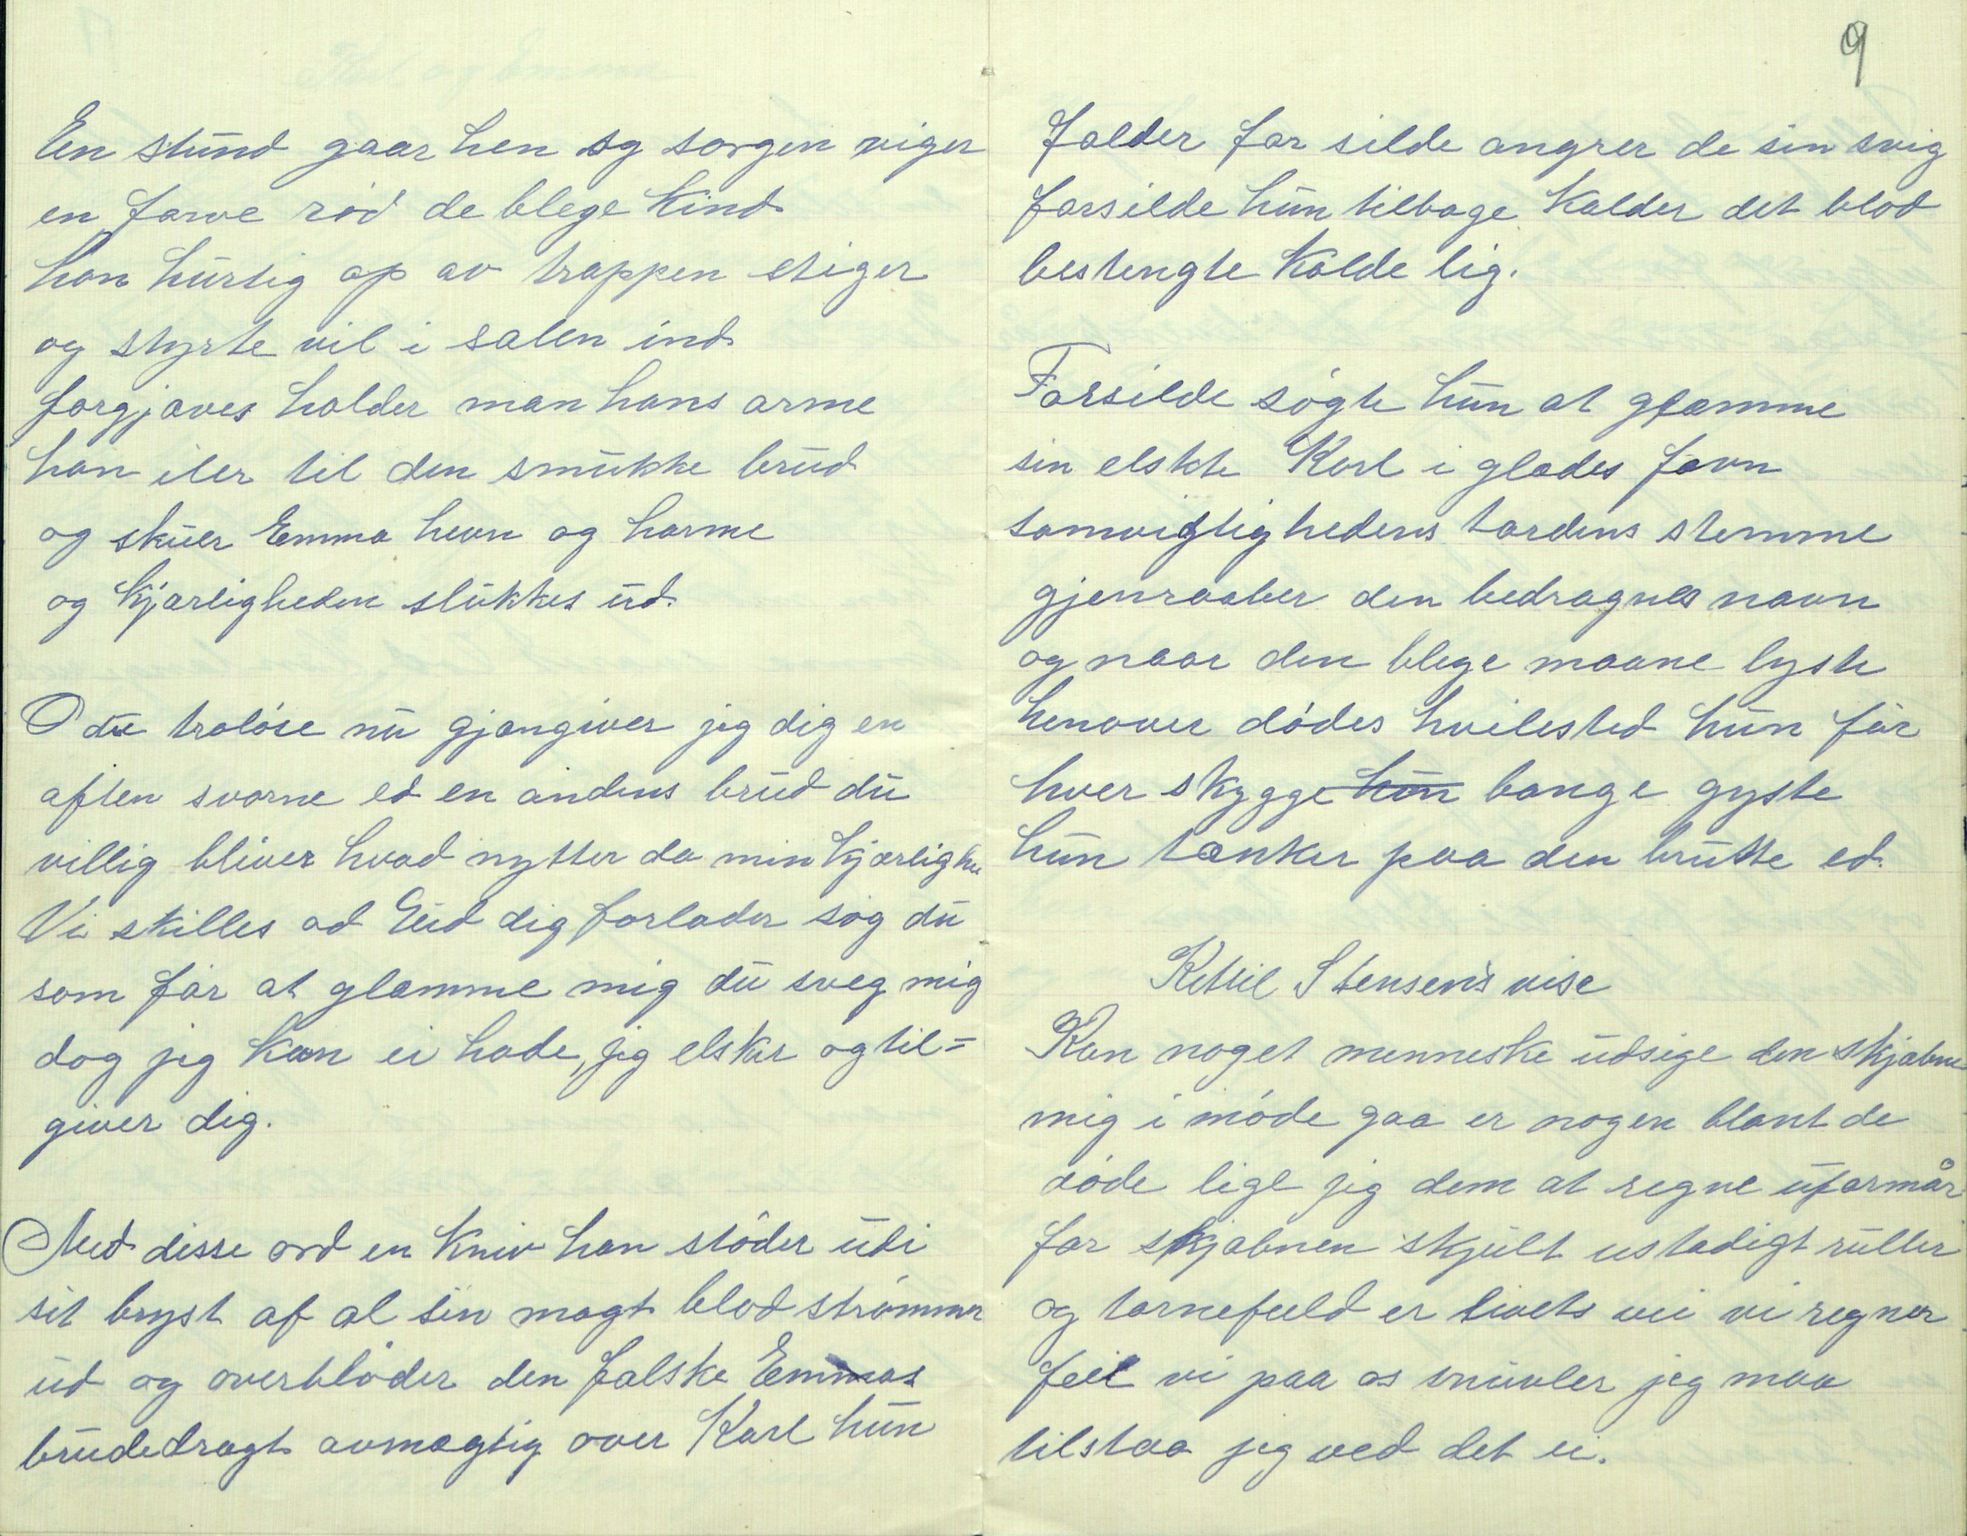 En stund gaar hen og sorgen viger
en farve rød de blege kind
han hurtig op av trappen stiger
og styrte vil i salen ind
forgjæves holder man hans arme
han iler til den smukke brud
og skuer Emma hevn og harme
og kjærligheden slukkes ud.

O du troløse nu gjængiver jeg dig en
aften svorne ed en andens brud du
villig bliver hvad nytter da min kjærlighe
Vi skilles ad Gud dig forlader søg du
som før at glæmme mig du sveg mig
dog jeg kan ei hade, jeg elsker og til=
giver dig.

Med disse ord en kniv han støder udi
sit bryst af al sin magt blod strømmer
ud og overbløder den falske Emmas
brudedragt avmægtig over Karl hun

9
falder for silde angrer de sin svig
forsilde hun tilbage kalder det blod
bestengte kolde lig.

Forsilde søgte hun at glæmme
sin elskte Karl i glædes favn
samvigtighedens tordens stemme
gjenraaber den bedragnes navn
og naar den blege maane lyste
henover dødes hvilested hun før
hver skygge hun bange gyste
hun tænker paa den brutte ed.

Kittil Stensens vise
Kan noget menneske udsige den skjæbne
mig i møde gaa er nogen blant de
døde lige jeg dem at regne uformår
for skjæbnen skjult ustadigt ruller
og tornefuld er livets vei vi regner
feil vi paa os snuvler jeg maa
tilstaa jeg ved det ei.